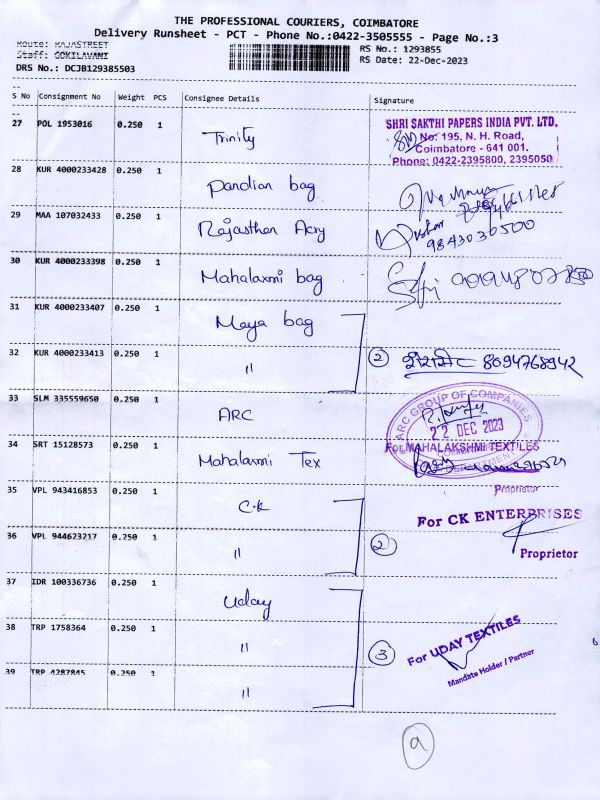 THE PROFESSIONAL COURIERS, COIMBATORE
Delivery Runsheet - PCT - Phone No.:0422-3505555 - Page No.:3
Route: RAJASTREET
RS No.: 1293855
Staff: GOKILAVANI
RS Date: 22-Dec-2023
DRS No.: DCJB129385503
S No Consignment No Weight PCS Consignee Details Signature
27 POL 1953016 0.250 1 Trinity
SHRI SAKTHI PAPERS INDIA PVT. LTD.
No: 195, N. H. Road,
Coimbatore - 641 001.
Phone: 0422-2395800, 2395050
28 KUR 4000233428 0.250 1 Pandian bag
29 MAA 107032433 0.250 1 Rajasthan Acry
9843030500
30 KUR 4000233398 0.250 1 Mahalaxmi bag
31 KUR 4000233407 0.250 1 Maya bag
32 KUR 4000233413 0.250 1 "
2 8094768942
33 SLM 335559650 0.250 1 ARC
ARC GROUP OF COMPANIES
22 DEC 2023
34 SRT 15128573 0.250 1 Mahalaxmi Tex
For MAHALAKSHMI TEXTILES
Proprietor
35 VPL 943416853 0.250 1 C.K
For CK ENTERPRISES
36 VPL 944623217 0.250 1 "
2
Proprietor
37 IDR 100336736 0.250 1 Uday
38 TRP 1758364 0.250 1 "
3 For UDAY TEXTILES
Mandate Holder / Partner
39 TRP 4287845 0.250 1 "
9